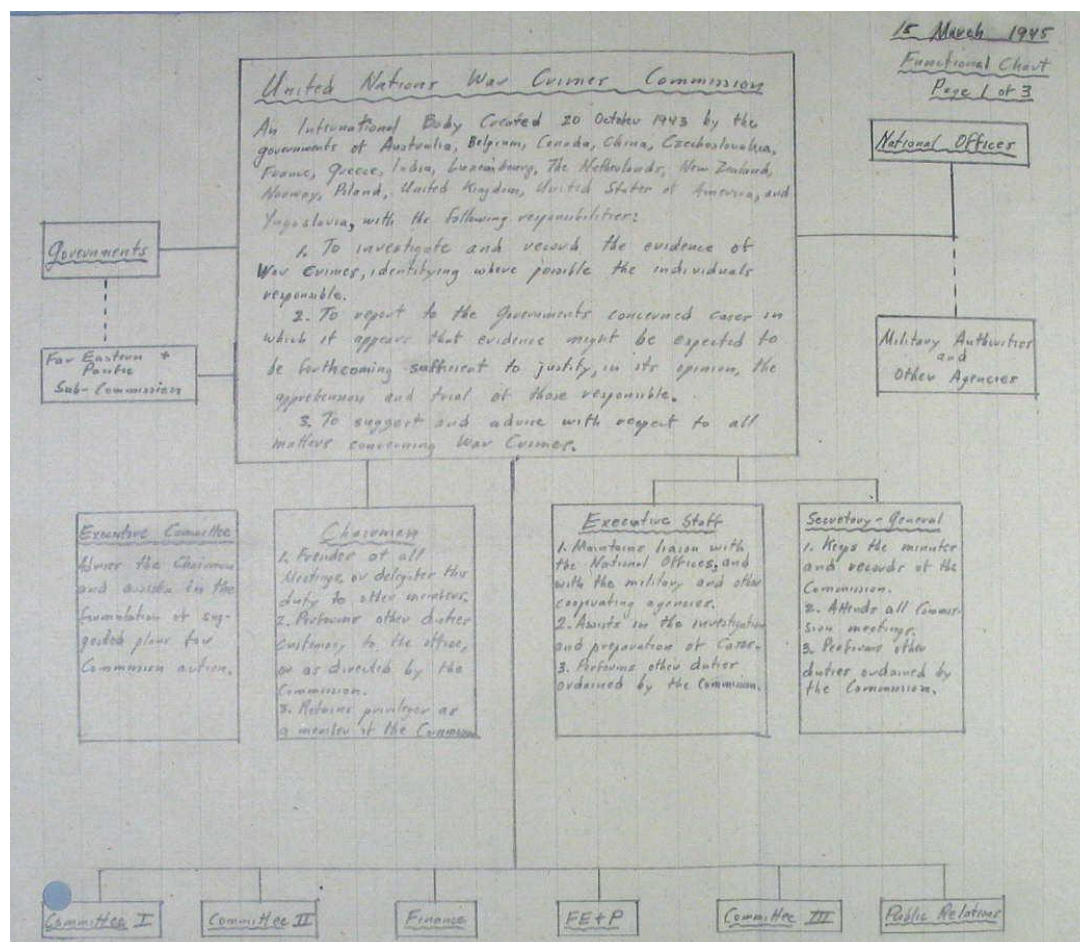 15 March 1945
Functional Chart
Page 1 of 3
United Nations War Crimes Commission
An International Body Created 20 October 1943 by the
governments of Australia, Belgium, Canada, China, Czechoslovakia,
France, Greece, India, Luxembourg, The Netherlands, New Zealand,
Norway, Poland, United Kingdom, United States of America, and
Yugoslavia, with the following responsibilities:
1. To investigate and record the evidence of
War Crimes, identifying where possible the individuals
responsible.
2. To report to the Governments concerned cases in
which it appears that evidence might be expected to
be forthcoming sufficient to justify, in its opinion, the
apprehension and trial of those responsible.
3. To suggest and advise with respect to all
matters concerning War Crimes.
National Offices
Military Authorities
and
Other Agencies
Governments
Far Eastern +
Pacific
Sub-Commission
Executive Committee
Advises the Chairman
and assists in the
formulation of sug-
gested plans for
Commission action.
Chairman
1. Presides at all
Meetings, or delegates this
duty to other members.
2. Performs other duties
customary to the office,
or as directed by the
Commission.
3. Retains privileges as
a member of the Commission
Executive Staff
1. Maintains liaison with
the National Offices, and
with the military and other
cooperating agencies.
2. Assists in the investigation
and preparation of Cases.
3. Performs other duties
ordained by the Commission.
Secretary-General
1. Keeps the minutes
and records of the
Commission.
2. Attends all Commis-
sion meetings.
3. Performs other
duties ordained by
the Commission.
Committee I
Committee II
Finance
FE+P
Committee III
Public Relations